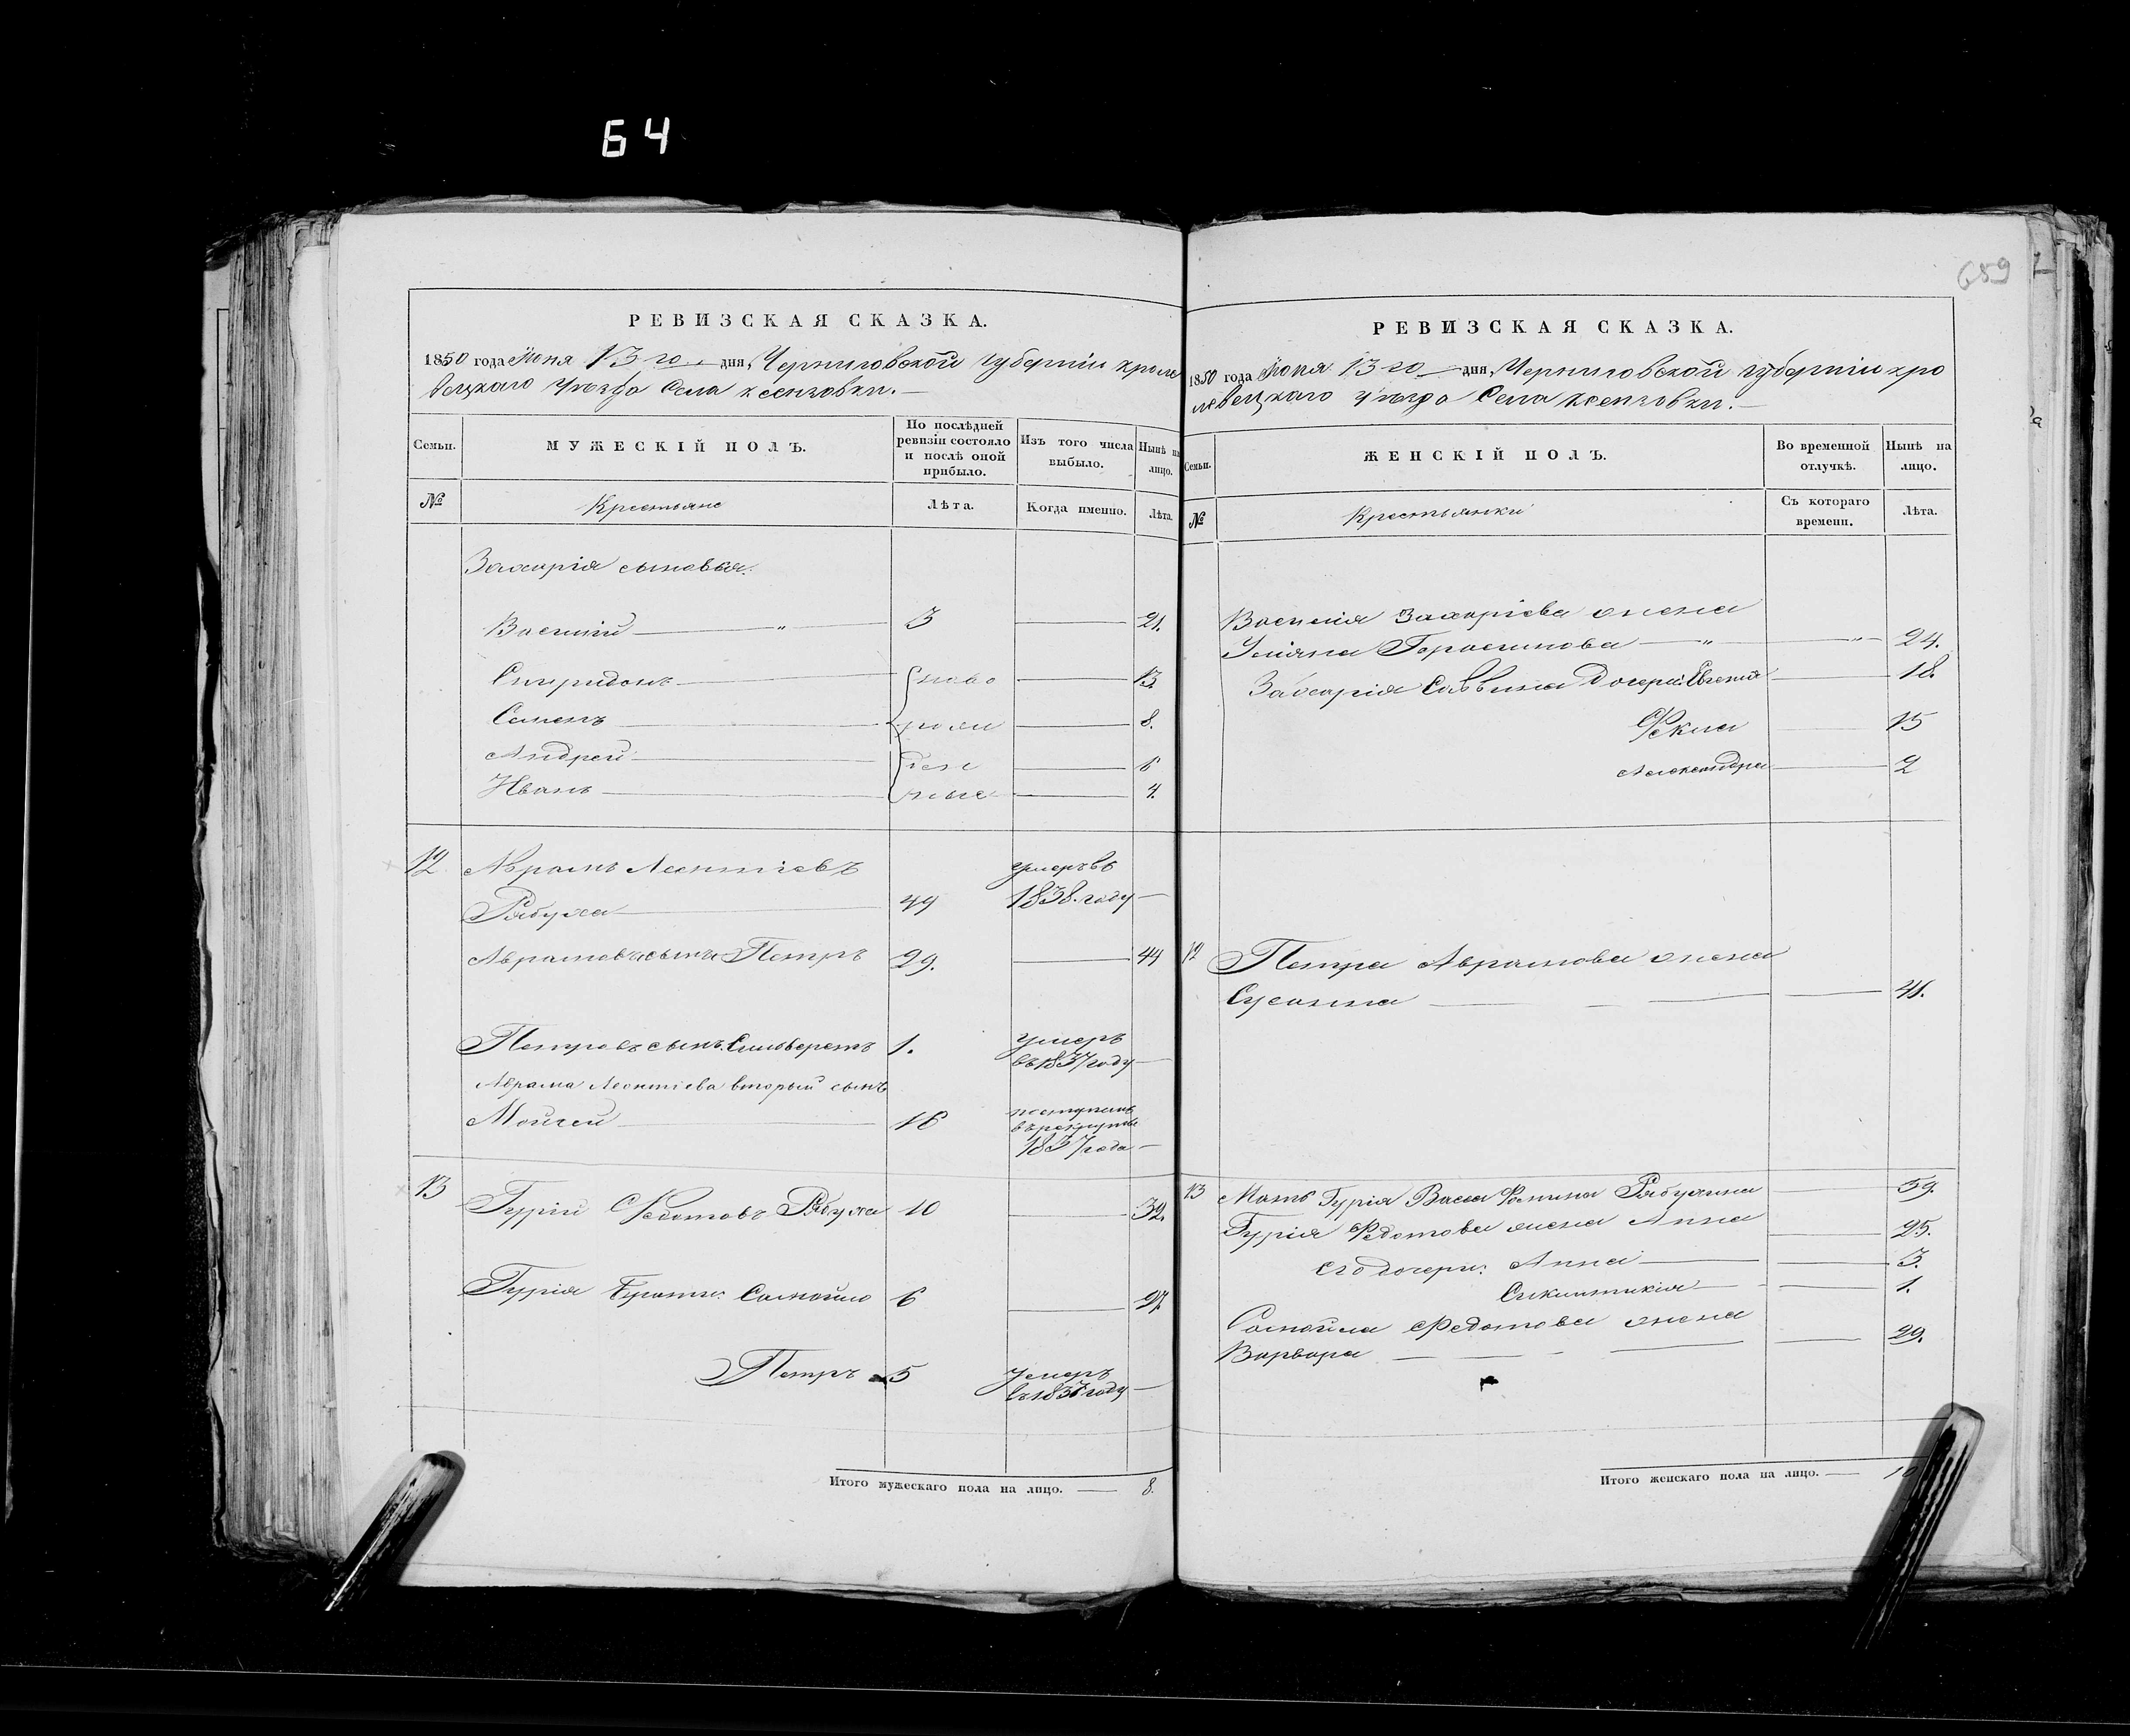 64
659
РЕВИЗСКАЯ СКАЗКА.
1850 года Июня 13 го дня, Черниговской губерніи кроле
вецкаго уѣзда Села ксензовки.
Семьи.
МУЖЕСКІЙ ПОЛЪ.
По послѣдней ревизіи состояло и послѣ оной прибыло.
Изъ того числа выбыло.
Нынѣ на лицо.
№
Крестьяне
Лѣта.
Когда именно.
Лѣта.
Захарія сыновья:
Василий 3 21.
Спиридонъ ново 13.
Семенъ рож 8.
Андрей ден 6
Иванъ ные 4.
12 Абрамъ Леонтіевъ умеръ въ
Рябуха 49 1838. году
Абрамовъ сынъ Петръ 29. 44
Петровъ сынъ Сильверстъ 1. умеръ
въ 1837 году
Абрама Леонтіева вторый сынъ
Мойсей 16 поступилъ
въ рекруты
1837 года
13 Гурій Федотовъ Рябуха 10 32.
Гурія братья: Самойло 6 27.
Петръ 5 умеръ
въ 1837 году
Итого мужескаго пола на лицо. 8.
РЕВИЗСКАЯ СКАЗКА.
1850 года Июня 13 го дня, Черниговской губерніи кро
левецкаго уѣзда Села ксензовки.
Семьи.
ЖЕНСКІЙ ПОЛЪ.
Во временной отлучкѣ.
Нынѣ на лицо.
№
Крестьянки
Съ котораго времени.
Лѣта.
Василія Захаріева жена
Уліяна Герасимова 24.
Захарія Саввина дочери: Евгенія 18.
Фекла 15
Александра 2
12 Петра Абрамова жена
Сусанна 41.
13 Мать Гурія Васса Фомина Рябухина 59.
Гурія Федотова жена Анна 25.
его дочери: Анна 3.
1.
Самойла Федотова жена
Варвара 29.
Итого женскаго пола на лицо. 10